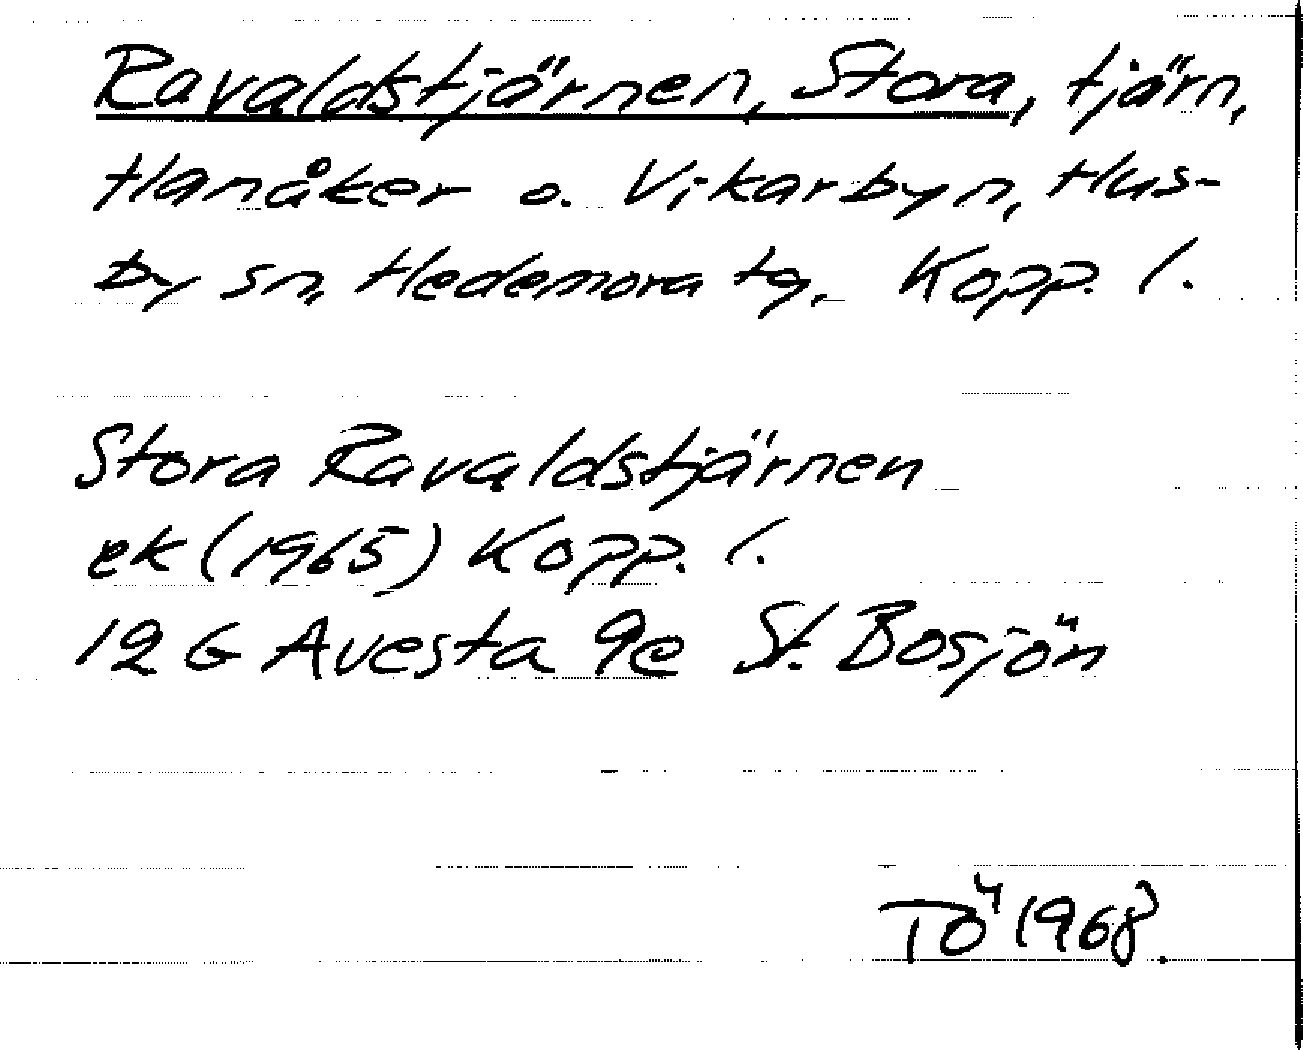 Ravaldstjärnen, Stora, tjärn,
Hanåker o. Vikarbyn, Hus-
by sn, Hedemora tg, Kopp. l.
Stora Ravaldstjärnen
ek (1965) Kopp. l.
12 G Avesta 9e St. Bosjön
TÖ 1968.